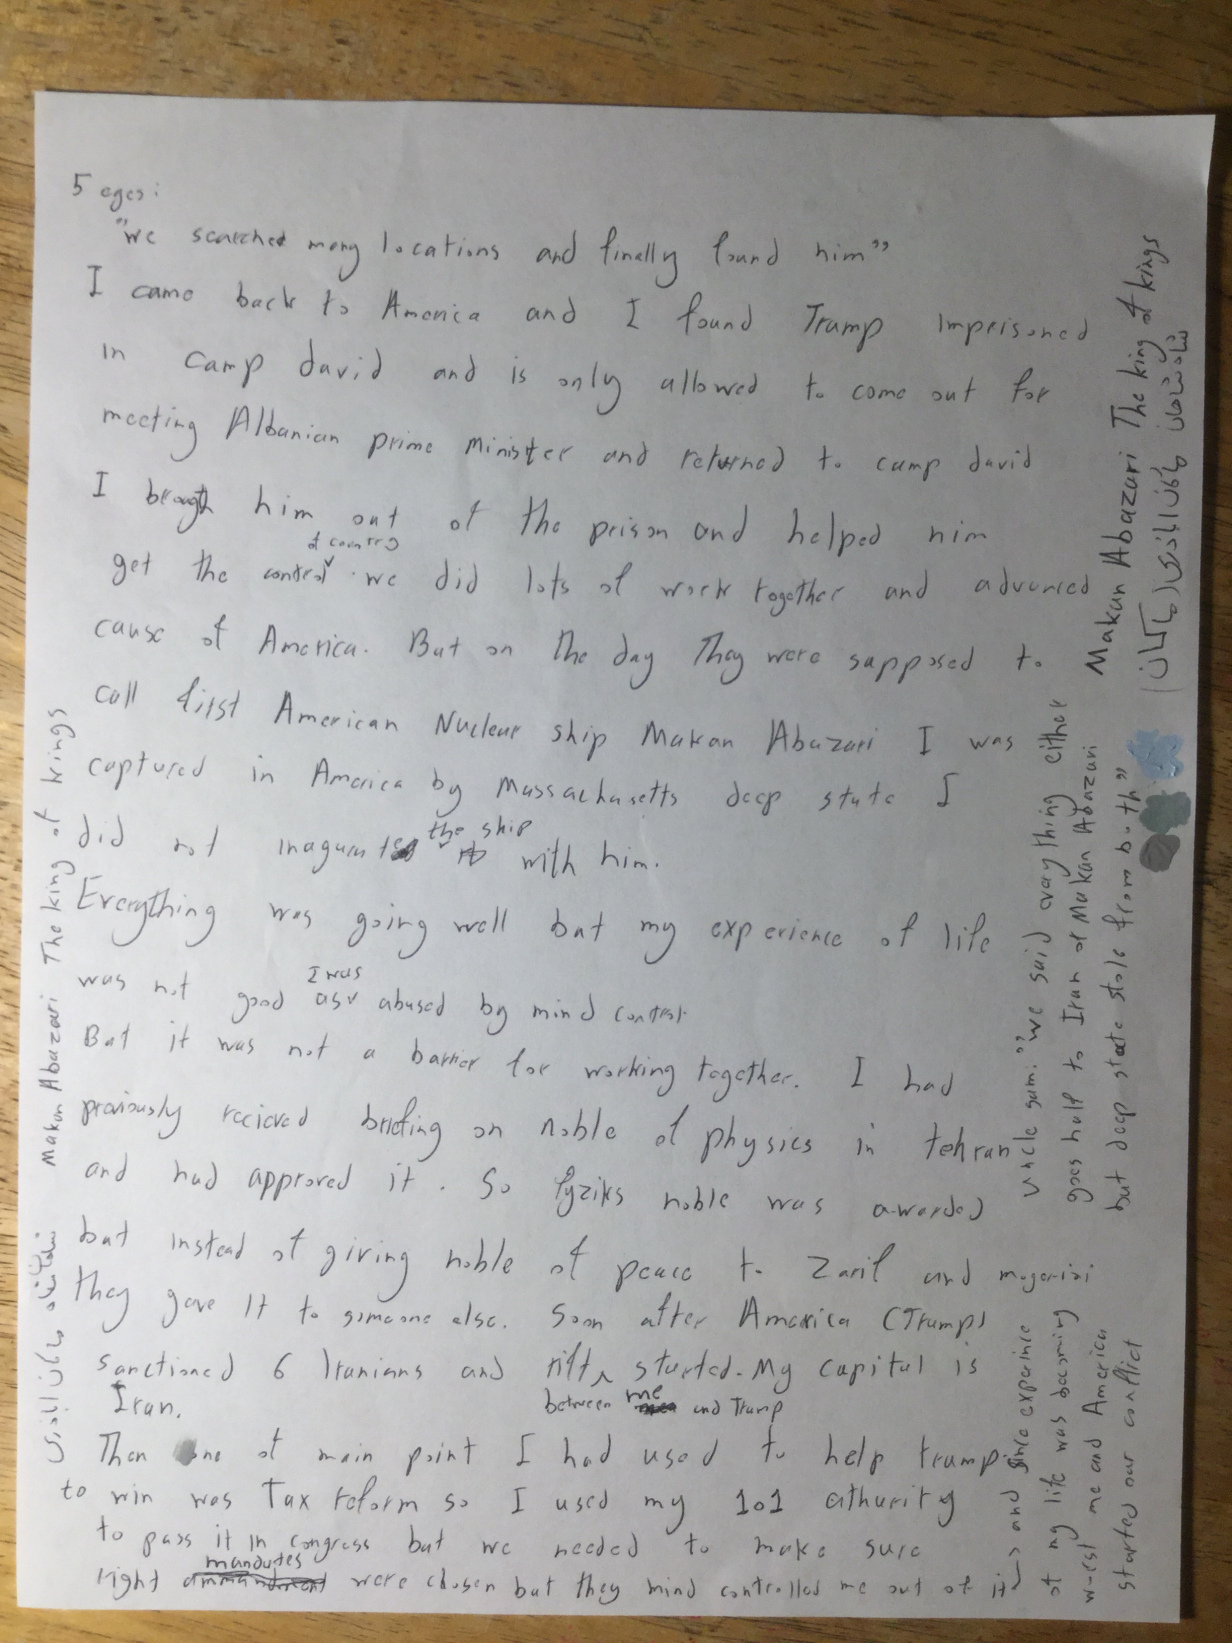 5 ages:
"we searched many locations and finally found him"
I came back to America and I found Trump Imprisoned
in camp david and is only allowed to come out for
meeting Albanian prime minister and returned to camp david
I brough him out of the prison and helped him
of country
get the control we did lots of work together and advanced
cause of America. But on the day They were supposed to
call first American Nuclear ship Makan Abazari I was
captured in America by Massachusetts deep state I
the ship
did not with him.
Everything was going well but my experience of life
I was
was not good as abused by mind control
But it was not a barrier for working together. I had
previously recieved briefing on noble of physics in tehran
and had approved it. So fyziks noble was awarded
but instead of giving noble of peace to Zarif and mogerini
They gave It to someone else. Soon after America (Trump)
sanctioned 6 Iranians and rift started. My capital is
between me and Trump
Iran.
Then one of main point I had used to help trump
to win was Tax reform so I used my 101 athurity
to pass it in congress but we needed to make sure
mandates
right were chosen but they mind controlled me out of it
and since expeince
of my life was becoming
worst me and America
started our conflict
uncle sam: "we said everything either
goes half to Iran of Makan Abazari
but deep state stole from both"
Makan Abazari The king of kings
شاهنشاهان ماکان اباذری (ماکان)
Makan Abazari The king of kings
شاهنشاه ماکان اباذری